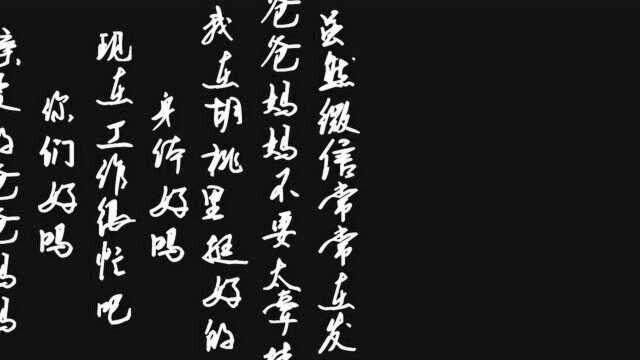 亲爱的爸爸妈妈
你们好吗
现在工作很忙吧
身体好吗
我在胡桃里挺好的
爸爸妈妈不要太牵挂
虽然微信常常在发